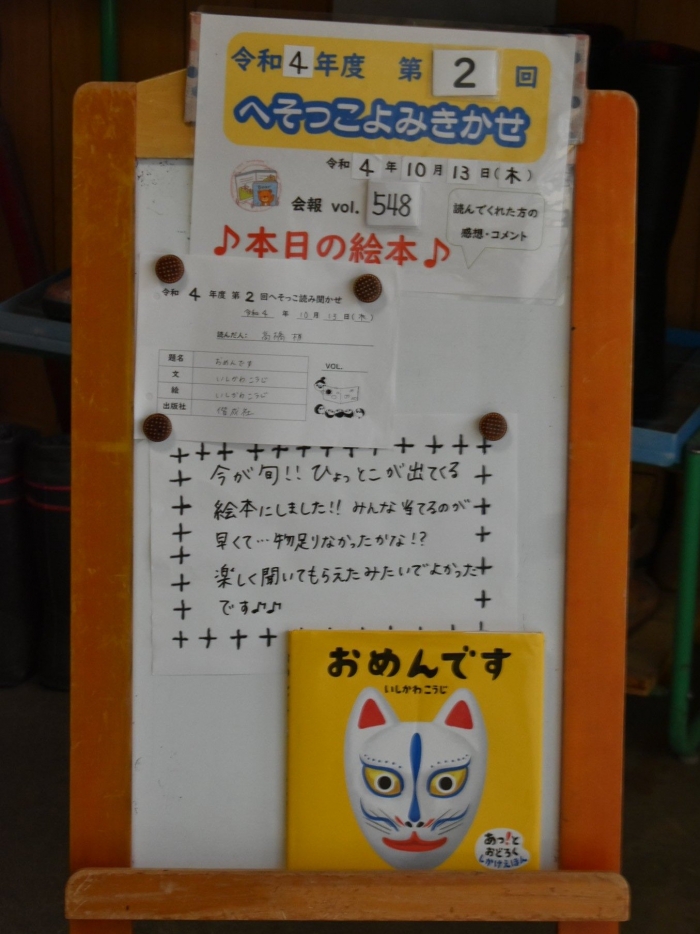 令和4年度 第2回
へそっこよみきかせ
令和4年10月13日(木)
会報 vol. 548
読んでくれた方の
感想・コメント
♪本日の絵本♪
令和 4 年度 第 2 回へそっこ読み聞かせ
令和4 年 10月 13日(木)
読んだ人:
題名 おめんです
文 いしかわこうじ
絵 いしかわこうじ
出版社 偕成社
VOL.
今が旬!!ひょっとこが出てくる
絵本にしました!!みんな当てるのが
早くて…物足りなかったかな!?
楽しく聞いてもらえたみたいでよかった
です♪♪
おめんです
いしかわこうじ
あっ!と
おどろく
しかけえほん